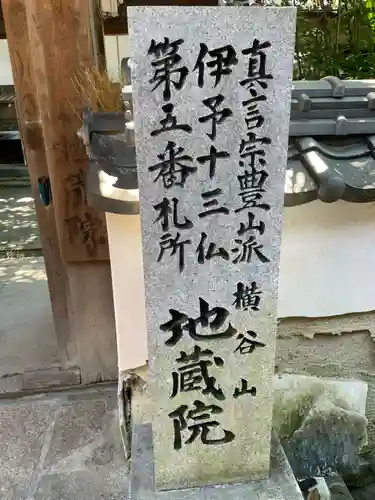 真言宗豊山派
横谷山
伊予十三仏
第五番札所
地蔵院
地蔵院